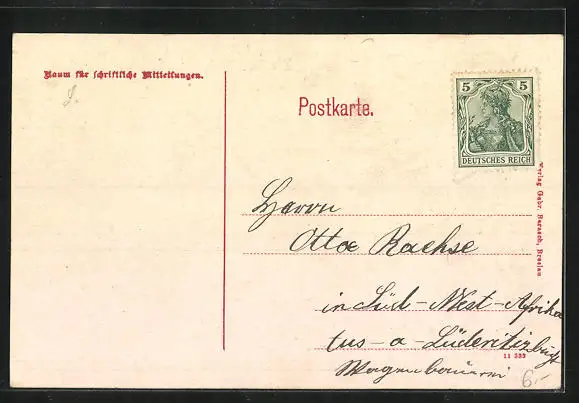 Raum für schriftliche Mitteilungen.
Postkarte.
5 5
DEUTSCHES REICH
Verlag Gebr. Barasch, Breslau
Herrn
Otto Raehse
in Süd-West-Afrika
tus-a-Lüderitzbugt
Wagenbauerei
11 333
6.-